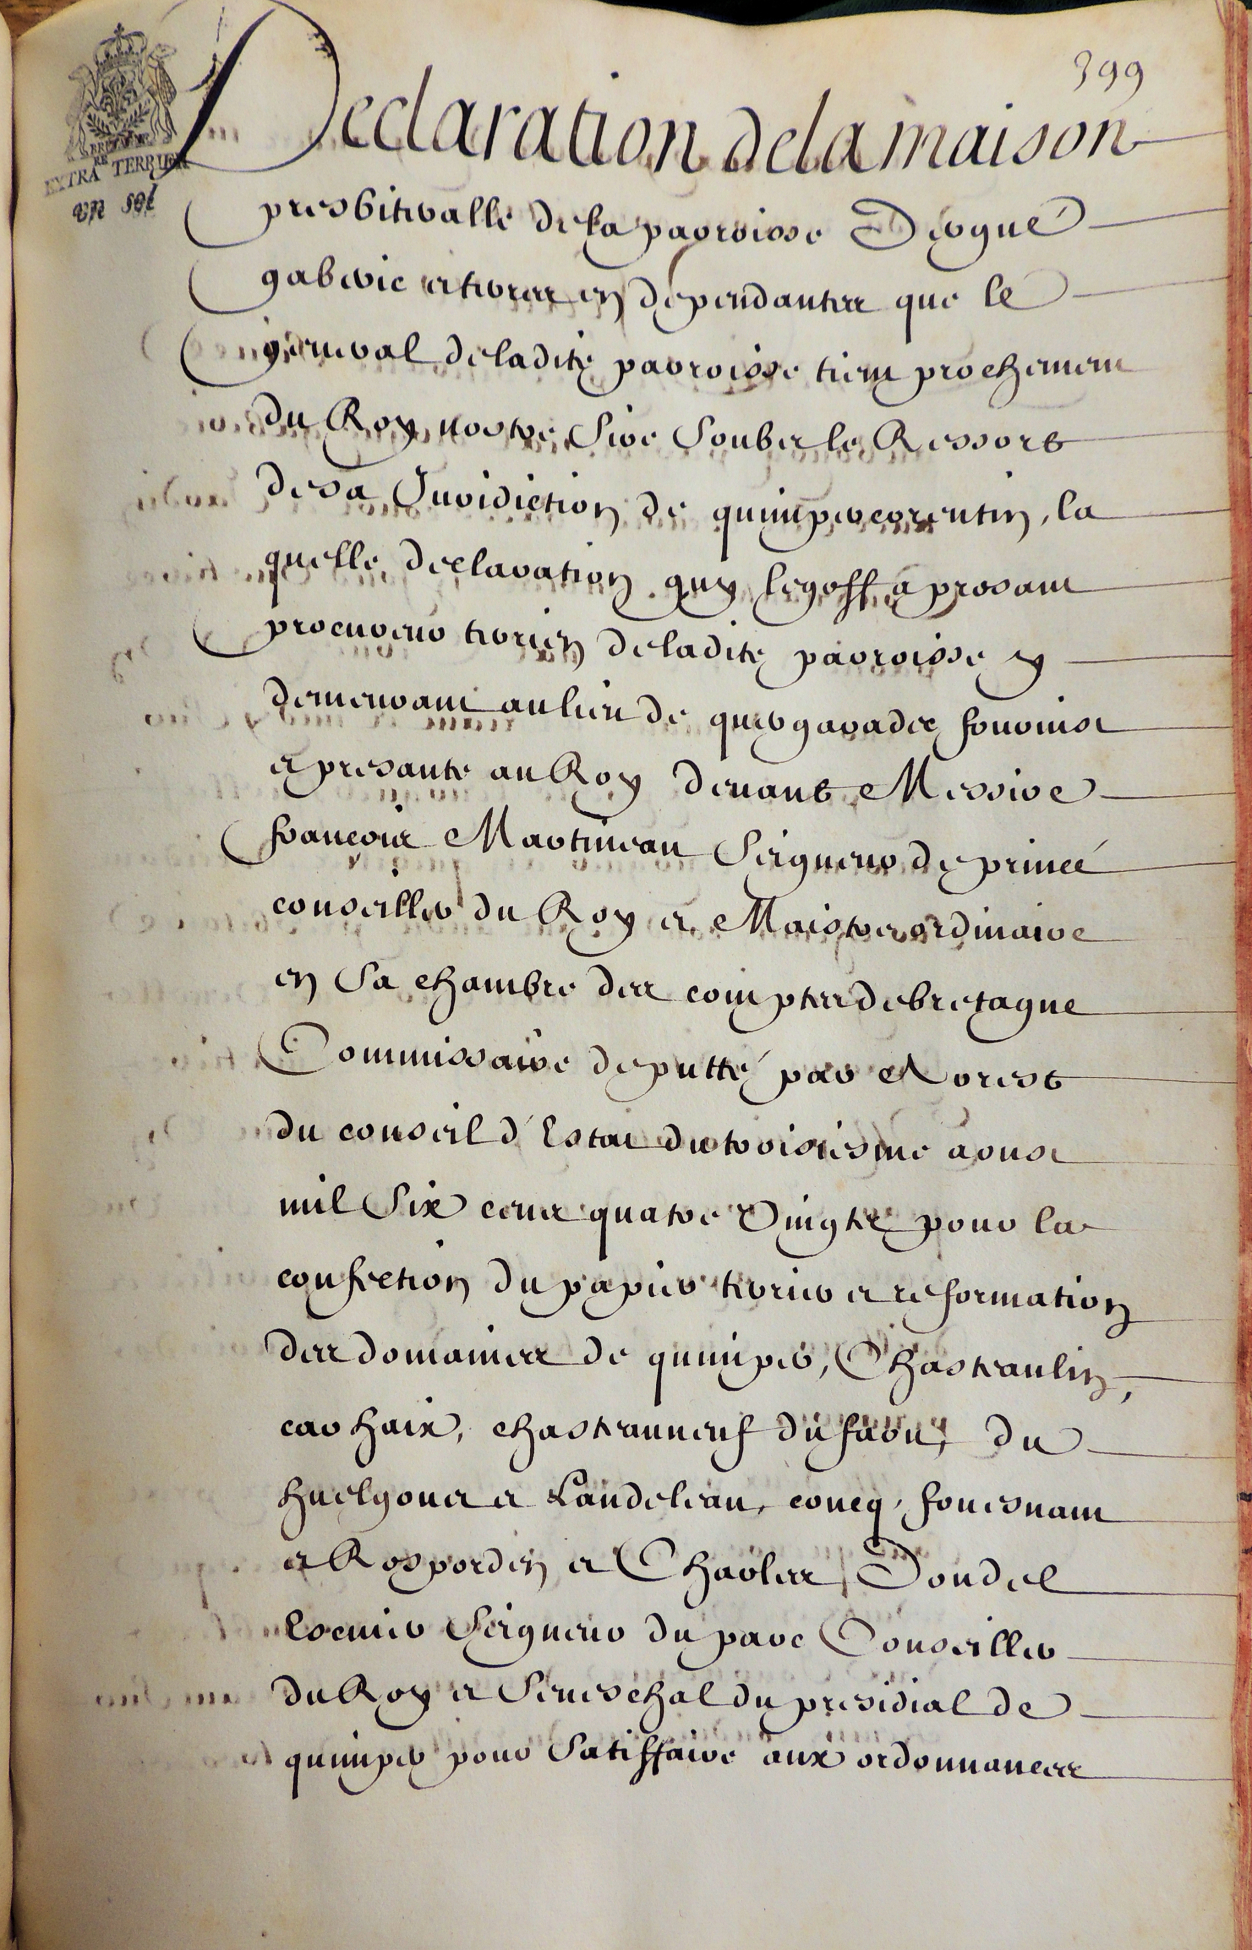 399
BRETAGNE
EXTRA TERRIER
un sol
Declaration de la maison
presbiteralle de la parroisse Dergué
gaberic et terres en dependantes que le
general de ladite parroisse tient prochement
du Roy nostre Sire Soubz le Ressort
de sa Juridiction de quimpercorentin, la
quelle declaration guy le goff a presant
procureur terrien de ladite parroisse y
demeurant au lieu de quergaradec fournist
et presante au Roy devant Messire
françois Martineau Seigneur de princé
conseiller du Roy et Maistre ordinaire
en Sa chambre des comptes de bretagne
Commissaire deputté par Arest
du conseil d'Estat du troisiesme aoust
mil Six cent quatre Vingts pour la
confection du papier terrier et reformation
des domaines de quimper, Chasteaulin,
carhaix, chasteauneuf du faou, du
huelgouet et Landeleau, concq, fouesnant
et Rosporden et Charles Doudel
Escuier Seigneur du parc Conseiller
du Roy et Seneschal du presidial de
quimper pour Satisfaire aux ordonnances